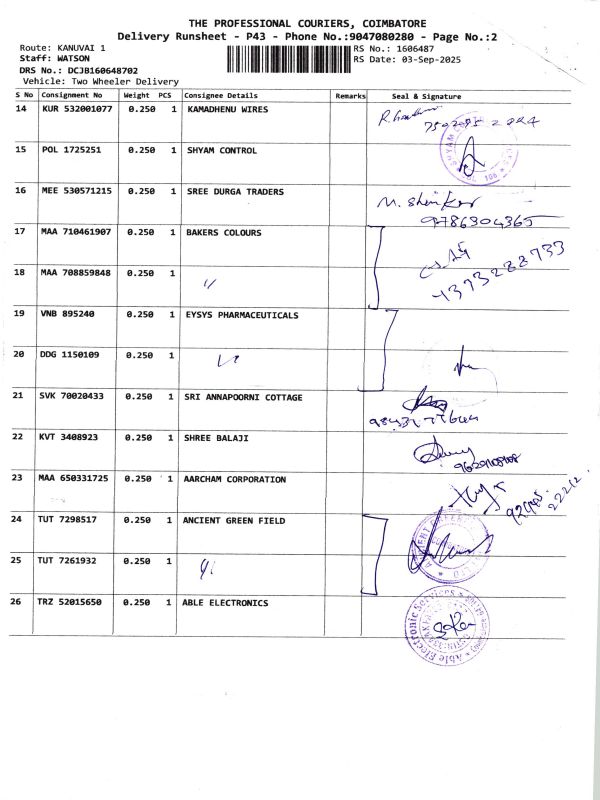 THE PROFESSIONAL COURIERS, COIMBATORE
Delivery Runsheet - P43 - Phone No.:9047080280 - Page No.:2
Route: KANUVAI 1
RS No.: 1606487
Staff: WATSON
RS Date: 03-Sep-2025
DRS No.: DCJB160648702
Vehicle: Two Wheeler Delivery
S No Consignment No Weight PCS Consignee Details Remarks Seal & Signature
14 KUR 532001077 0.250 1 KAMADHENU WIRES
15 POL 1725251 0.250 1 SHYAM CONTROL
16 MEE 530571215 0.250 1 SREE DURGA TRADERS
9786304365
17 MAA 710461907 0.250 1 BAKERS COLOURS
18 MAA 708859848 0.250 1 "
19 VNB 895240 0.250 1 EYSYS PHARMACEUTICALS
20 DDG 1150109 0.250 1 "
21 SVK 70020433 0.250 1 SRI ANNAPOORNI COTTAGE
22 KVT 3408923 0.250 1 SHREE BALAJI
23 MAA 650331725 0.250 1 AARCHAM CORPORATION
24 TUT 7298517 0.250 1 ANCIENT GREEN FIELD
25 TUT 7261932 0.250 1 "
26 TRZ 52015650 0.250 1 ABLE ELECTRONICS
Able Electronic Services